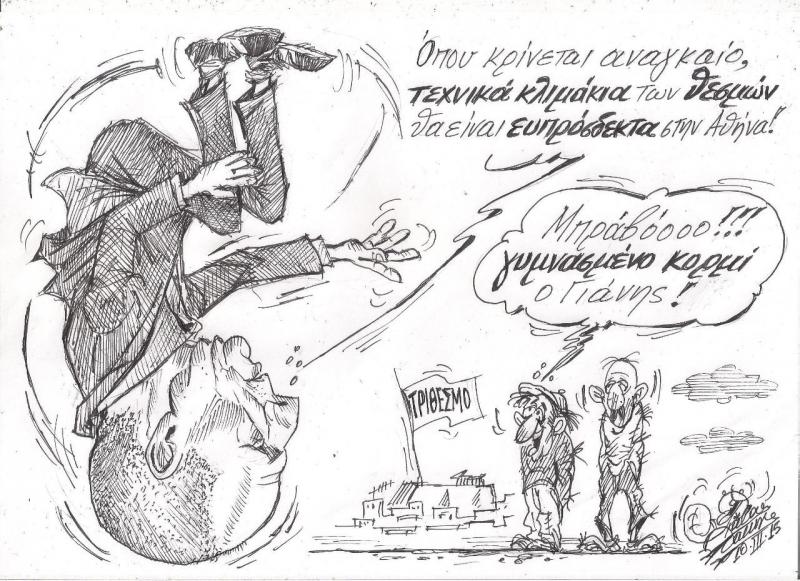 Όπου κρίνεται αναγκαίο,
τεχνικά κλιμάκια των θεσμών
θα είναι ευπρόσδεκτα στην Αθήνα!
Μπράβόοοο!!!
γυμνασμένο κορμί
ο Γιάνης!
ΤΡΙΘΕΣΜΟ
10-III-15